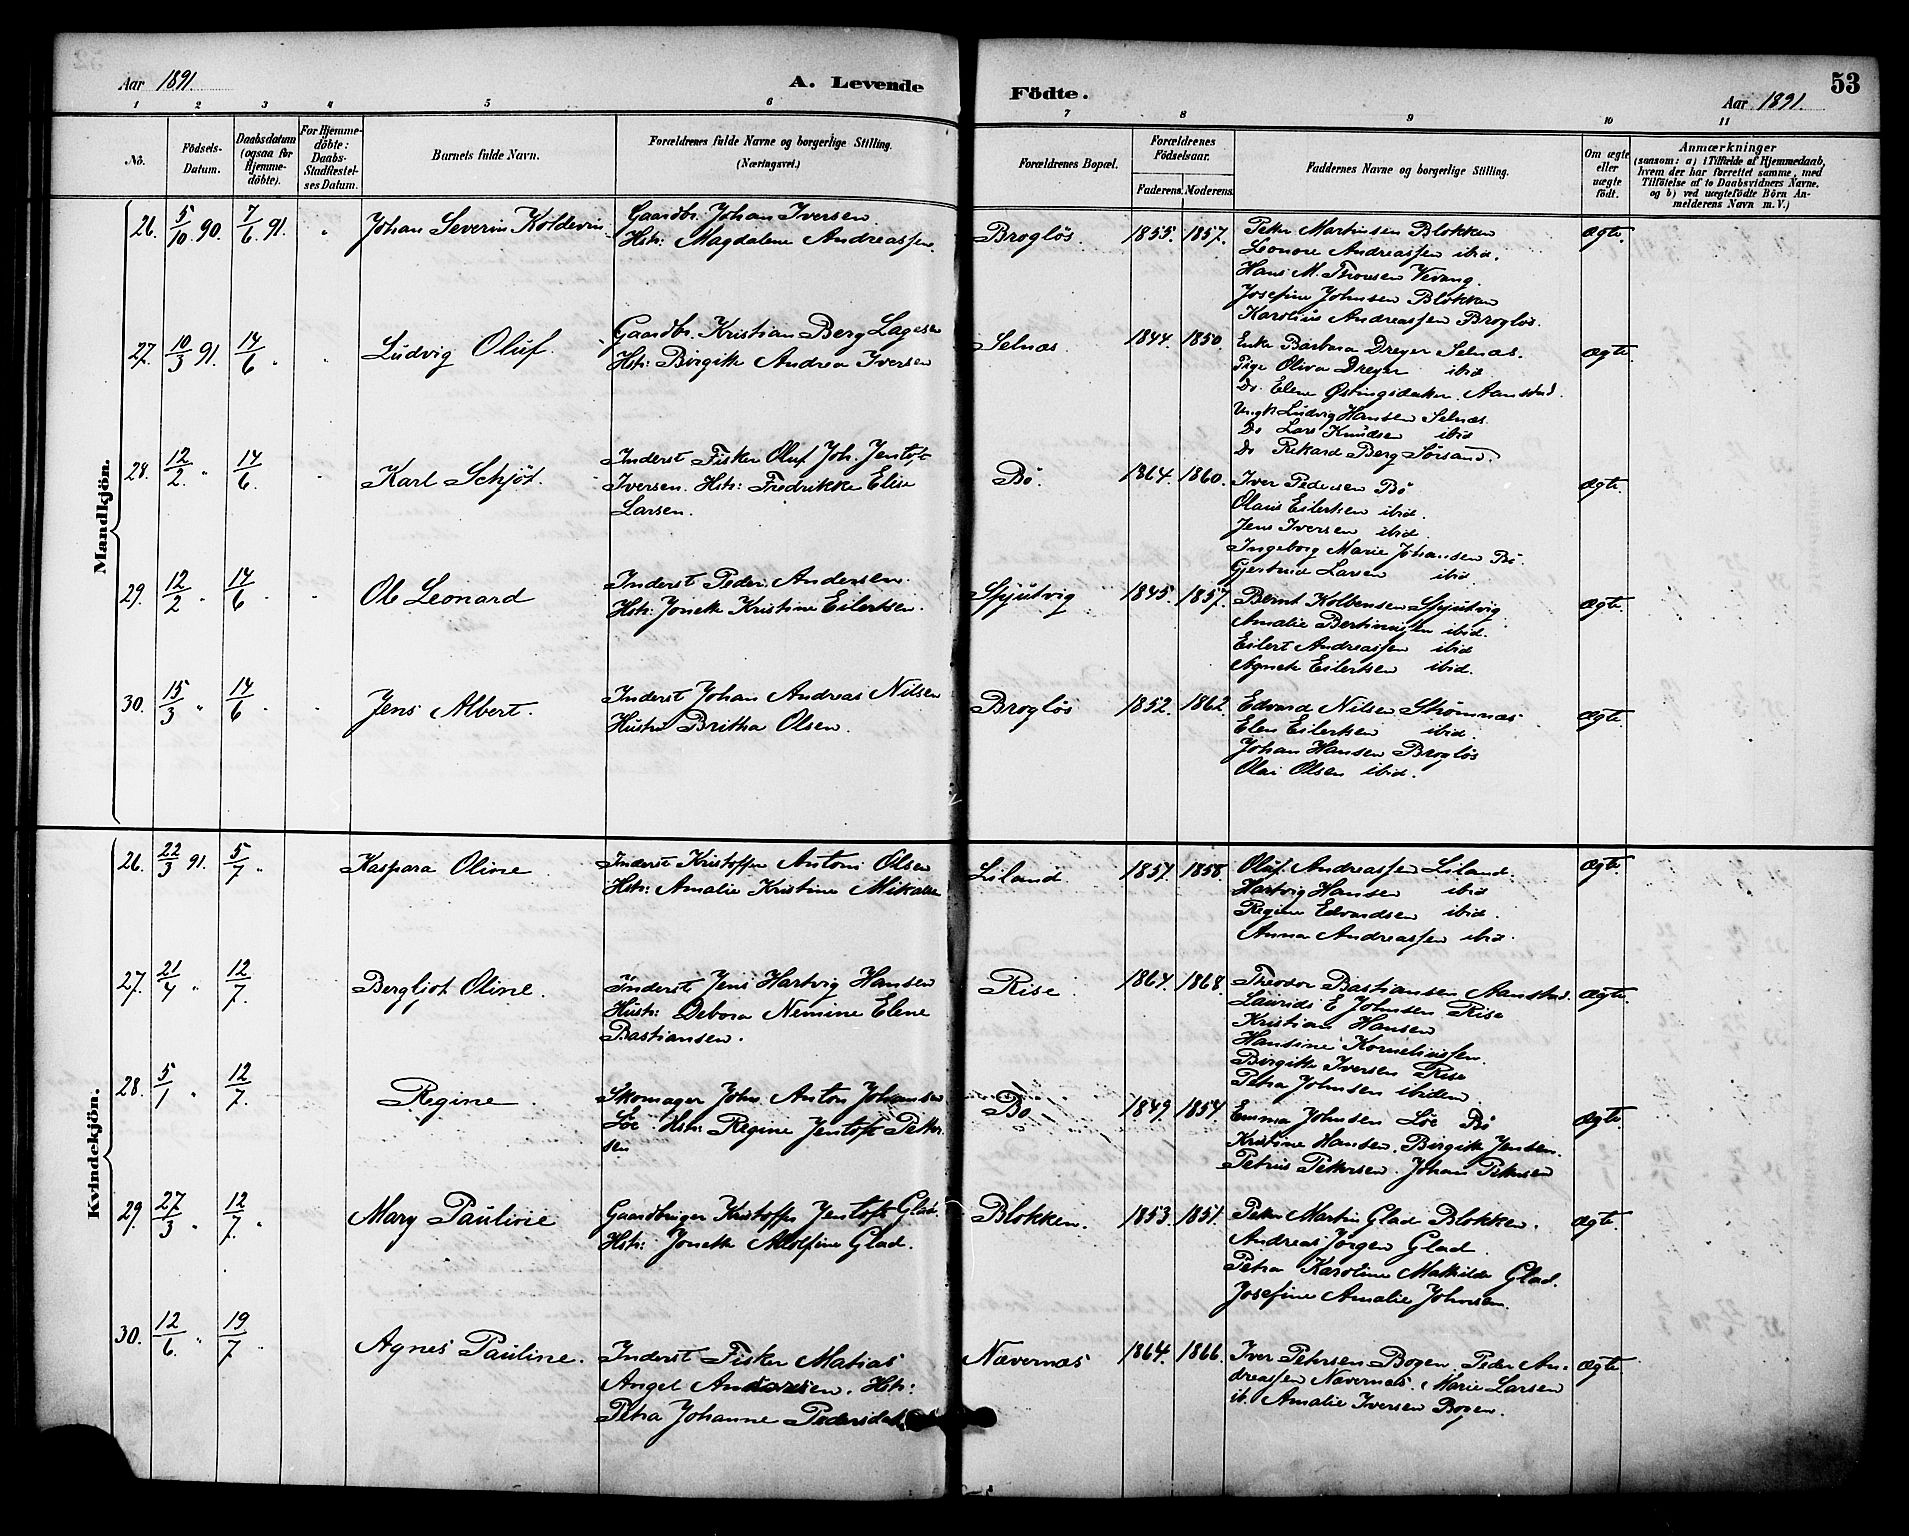 Aar 1891.
A. Levende Födte.
Aar 1891.
53
1 2 3 4 5 6 7 8 9 10 11
No.
Födsels-Datum.
Daabsdatum (ogsaa for Hjemmedöbte).
For Hjemmedöbte: Daabs-Stadfæstelses Datum.
Barnets fulde Navn.
Forældrenes fulde Navne og borgerlige Stilling.
(Næringsvei.)
Forældrenes Bopæl.
Forældrenes Födselsaar.
Faderens. Moderens.
Faddernes Navne og borgerlige Stilling.
Om ægte eller uægte födt.
Anmærkninger
(saasom: a) i Tilfælde af Hjemmedaab, hvem der har forrettet samme, med Tilföielse af to Daabsvidners Navne, og b) ved uægtefödte Börn Anmelderens Navn m. V.)
Mandkjön.
26. 5/10 90. 7/6 91. " Johan Severin Koldevin
Gaardbr. Johan Iversen
Hstr. Magdalene Andreassen.
Brogløs. 1855. 1857.
Peter Martinsen Blokken
Leonore Andreassen ibid.
Hans M. Thoresen Vevang.
Josefine Johnsen Blokken
Karolius Andreassen Brogløs.
ægte.
27. 10/3 91. 14/6 " Ludvig Oluf.
Gaardbr. Kristian Berg Lagesen
Hstr: Birgitte Andrea Iversen
Selnæs. 1844. 1850.
Enke Barbara Dreyer Selnæs.
Pige Oliva Dreyer ibid
Do. Elene Østingsdatter. Aanstad.
Ungk Ludvig Hansen Selnæs.
Do Lars Knudsen ibid
Do Rikard Berg Sørsand.
ægte.
28. 12/2 " 14/6 Karl Schjøt.
Inderst Fisker Oluf Joh. Jentoft
Iversen. Hstr: Fredrikke Elise
Larsen.
Bø. 1864. 1860.
Iver Pedersen Bø
Olaus Eilertsen ibid.
Jens Iversen ibid.
Ingeborg Marie Johansen Bø.
Gjertrud Larsen ibid.
ægte.
29. 12/2 " 14/6 Ole Leonard
Inderst Peder Andersen.
Hstr: Jonette Kristine Eilertsen.
Spjutvig 1845. 1857.
Bernt Kolbensen Spjutvig
Amalie Bertinussen ibid.
Eilert Andreassen ibid
Agnete Eilertsen ibid.
ægte.
30. 15/3 " 14/6 Jens Albert.
Inderst Johan Andreas Nilsen
Hustru Britha Olsen.
Brogløs 1852. 1862.
Edvard Nilsen Strømnæs
Elen Eilertsen ibid.
Johan Hansen Brogløs
Olai Olsen ibid.
ægte.
Kvindekjön.
26. 22/3 91. 5/7 " Kaspara Oline
Inderst Kristoffer Antoni Olsen
Hstr: Amalie Kristine
Liland 1857. 1858.
Oluf Andreassen Liland.
Hartvig Hansen ibid
Regine Edvardsen ibid.
Anna Andreassen ibid.
ægte.
27. 21/4 " 12/7 Bergliot Oline.
Inderst Jens Hartvig Hansen
Hustr: Debora Nemine Elene
Bastiansen.
Rise 1864. 1868.
Theodor Bastiansen Aanstad.
Laurids E Johnsen Rise
Kristian Hansen
Hansine Korneliussen.
Birgitte Iversen Rise
Petra Johnsen ibidem
ægte.
28. 5/1 " 12/7 Regine
Skomager John Anton Johansen
Løe. Hstr: Regine Jentoft Petter-
sen
Bø 1849. 1854.
Emma Johnsen Løe Bø
Kristine Hansen. Birgitte Jensen.
Petrus Petersen. Johan Petersen
ægte.
29. 27/3 " 12/7 " Mary Pauline
Gaardbruger Kristoffer Jentoft Glad.
Hstr: Jonette Adolfine Glad.
Blokken. 1853. 1851.
Peter Martin Glad Blokken.
Andreas Jørgen Glad
Petra Karoline Mathilde Glad.
Josefine Amalie Johnsen.
ægte.
30. 12/6 " 19/7 " Agnes Pauline.
Inderst Fisker Matias
Angel Andersen. Hstr:
Petra Johanne Pedersdat.
Nævernæs 1864. 1866.
Iver Petersen Bogen. Peder An-
dreassen Nævernæs. Marie Larsen
ib. Amalie Iversen Bogen.
ægte.